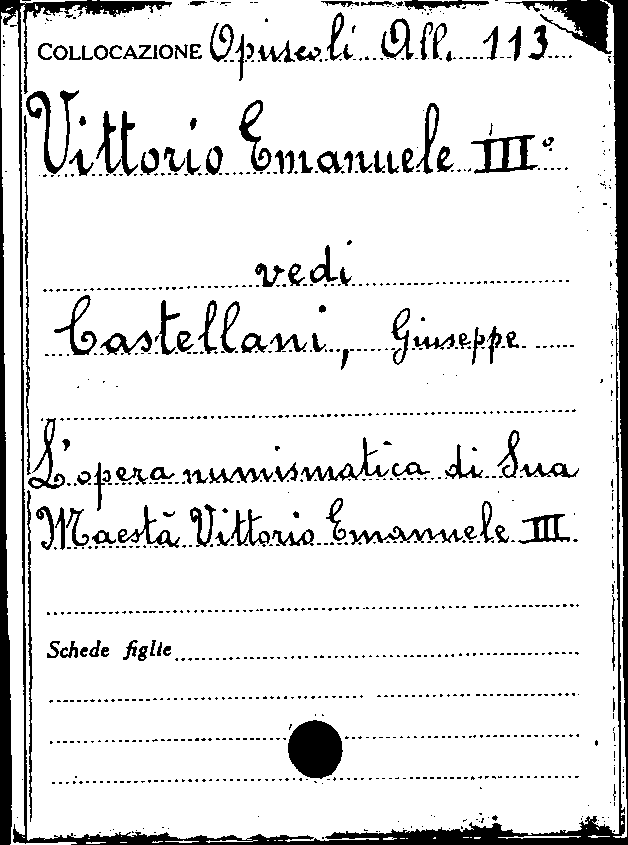 COLLOCAZIONE Opuscoli All. 113
Vittorio Emanuele III°
vedi
Castellani, Giuseppe
L'opera numismatica di Sua
Maestà Vittorio Emanuele III
Schede figlie